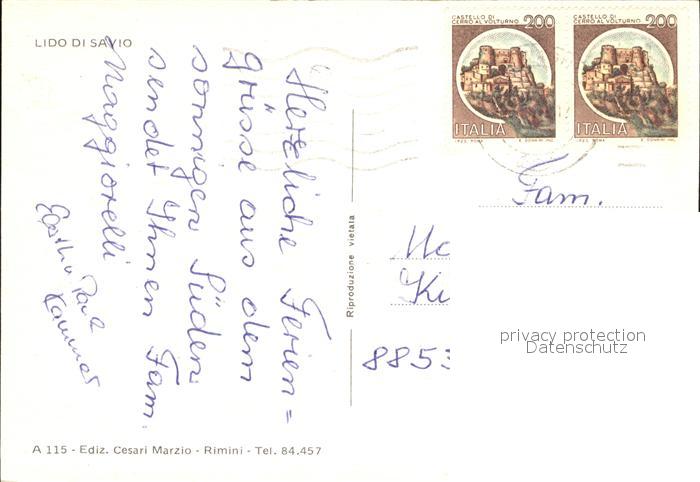 LIDO DI SAVIO
CASTELLO DI
CERRO AL VOLTURNO 200
ITALIA
CASTELLO DI
CERRO AL VOLTURNO 200
ITALIA
Herzliche Ferien=
grüsse aus dem
sonnigen Süden
sendet Ihnen Fam.
Maggiorelli
Riproduzione vietata
Fam.
885
privacy protection
Datenschutz
A 115 - Ediz. Cesari Marzio - Rimini - Tel. 84.457